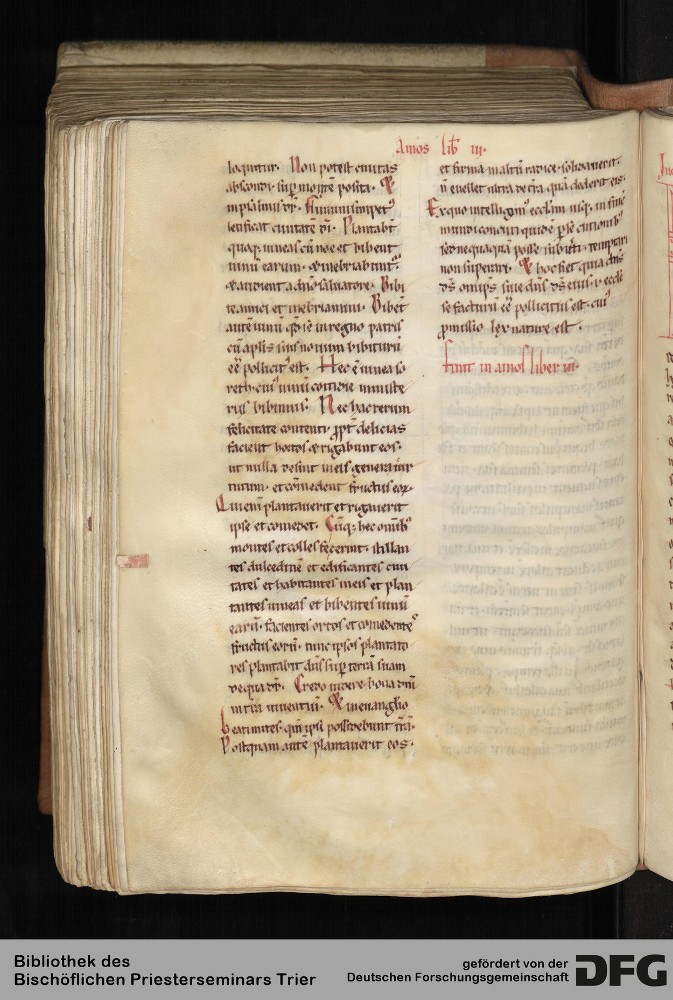 Amos lib iii.
loquitur. Non potest civitas
abscondi. sup monte posita. Et
in psalmis dr. Fluminis impet
letificat civitate di. Plantabt
quoq; vineas cu noe et bibent
vinu earum. & inebriabunt.
& audient a dno salvatore. Bibi
te amici et inebriamini. Bibet
aute vinu qd se in regno patris
cu aplis suis novum bibituru
ee pollicit est. Hec e vinea so
reth. cui vinu cotidie in miste
riis bibimus. Nec hac rerum
felicitate contenti. ppt delicias
facient hortos & rigabunt eos.
ut nulla desint in eis genera vir
tutum. et comedent fructus eor
Qui eni plantaverit et rigaverit
ipse et comedet. Cuq; hec omib
montes et colles fecerint. stillan
tes dulcedine et edificantes civi
tates et habitantes in eis et plan
tantes vineas et bibentes vinu
earu. facientes ortos et comedente
fructus eoru. tunc ipsos plantato
res plantabit dns sup terra suam
de qua dr. Credo videre bona dni
in tra viventiu. Et in evanglio
beati mites. qm ipsi possidebunt tra.
Postquam aute plantaverit eos.
et firma in altu radice solidaverit.
n evellet ultra de tra qua dederit eis.
Ex quo intelligim ecclam usq; in fine
mundi concuti quide psecutionib
sed nequaqua posse subverti. temptari
non superari. Et hoc fiet. quia dns
ds omips sive dns ds eius. i. eccle
se facturu ee pollicitus est. cui
pmissio lex nature est.
finit in amos liber iii.
Bibliothek des
Bischöflichen Priesterseminars Trier
gefördert von der
Deutschen Forschungsgemeinschaft
DFG